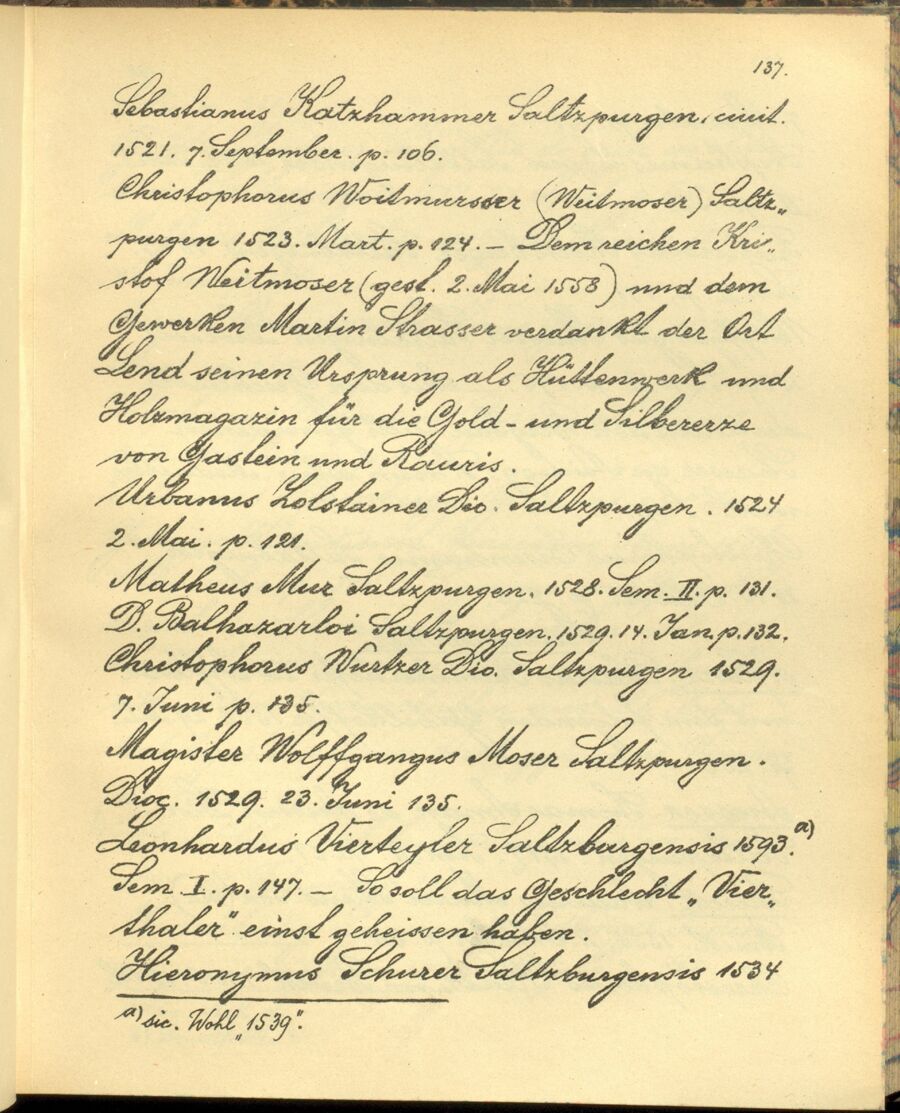 137.
Sebastianus Katzhammer Saltzpurgen. civit.
1521. 7. September. p. 106.
Christophorus Woitmursser (Weitmoser) Saltz„
purgen 1523. Mart. p. 124. – Dem reichen Kri„
stof Weitmoser (gest. 2. Mai 1558) und dem
Gewerken Martin Strasser verdankt der Ort
Lend seinen Ursprung als Hüttenwerk und
Holzmagazin für die Gold- und Silbererze
von Gastein und Rauris.
Urbanus Holstainer Dio. Saltzpurgen. 1524
2. Mai. p. 121.
Matheus Mur Saltzpurgen. 1528. Sem. II. p. 131.
D. Balhazarloi Saltzpurgen. 1529. 14. Jan. p. 132.
Christophorus Wurtzer Dio. Saltzpurgen 1529.
7. Juni p. 135.
Magister Wolffgangus Moser Saltzpurgen.
Dioc. 1529. 23. Juni 135.
Leonhardus Vierteyler Saltzburgensis 1593.a)
Sem I. p. 147. – So soll das Geschlecht „Vier„
thaler“ einst geheissen haben.
Hieronymus Schurer Saltzburgensis 1534
a) sic. Wohl „1539“.